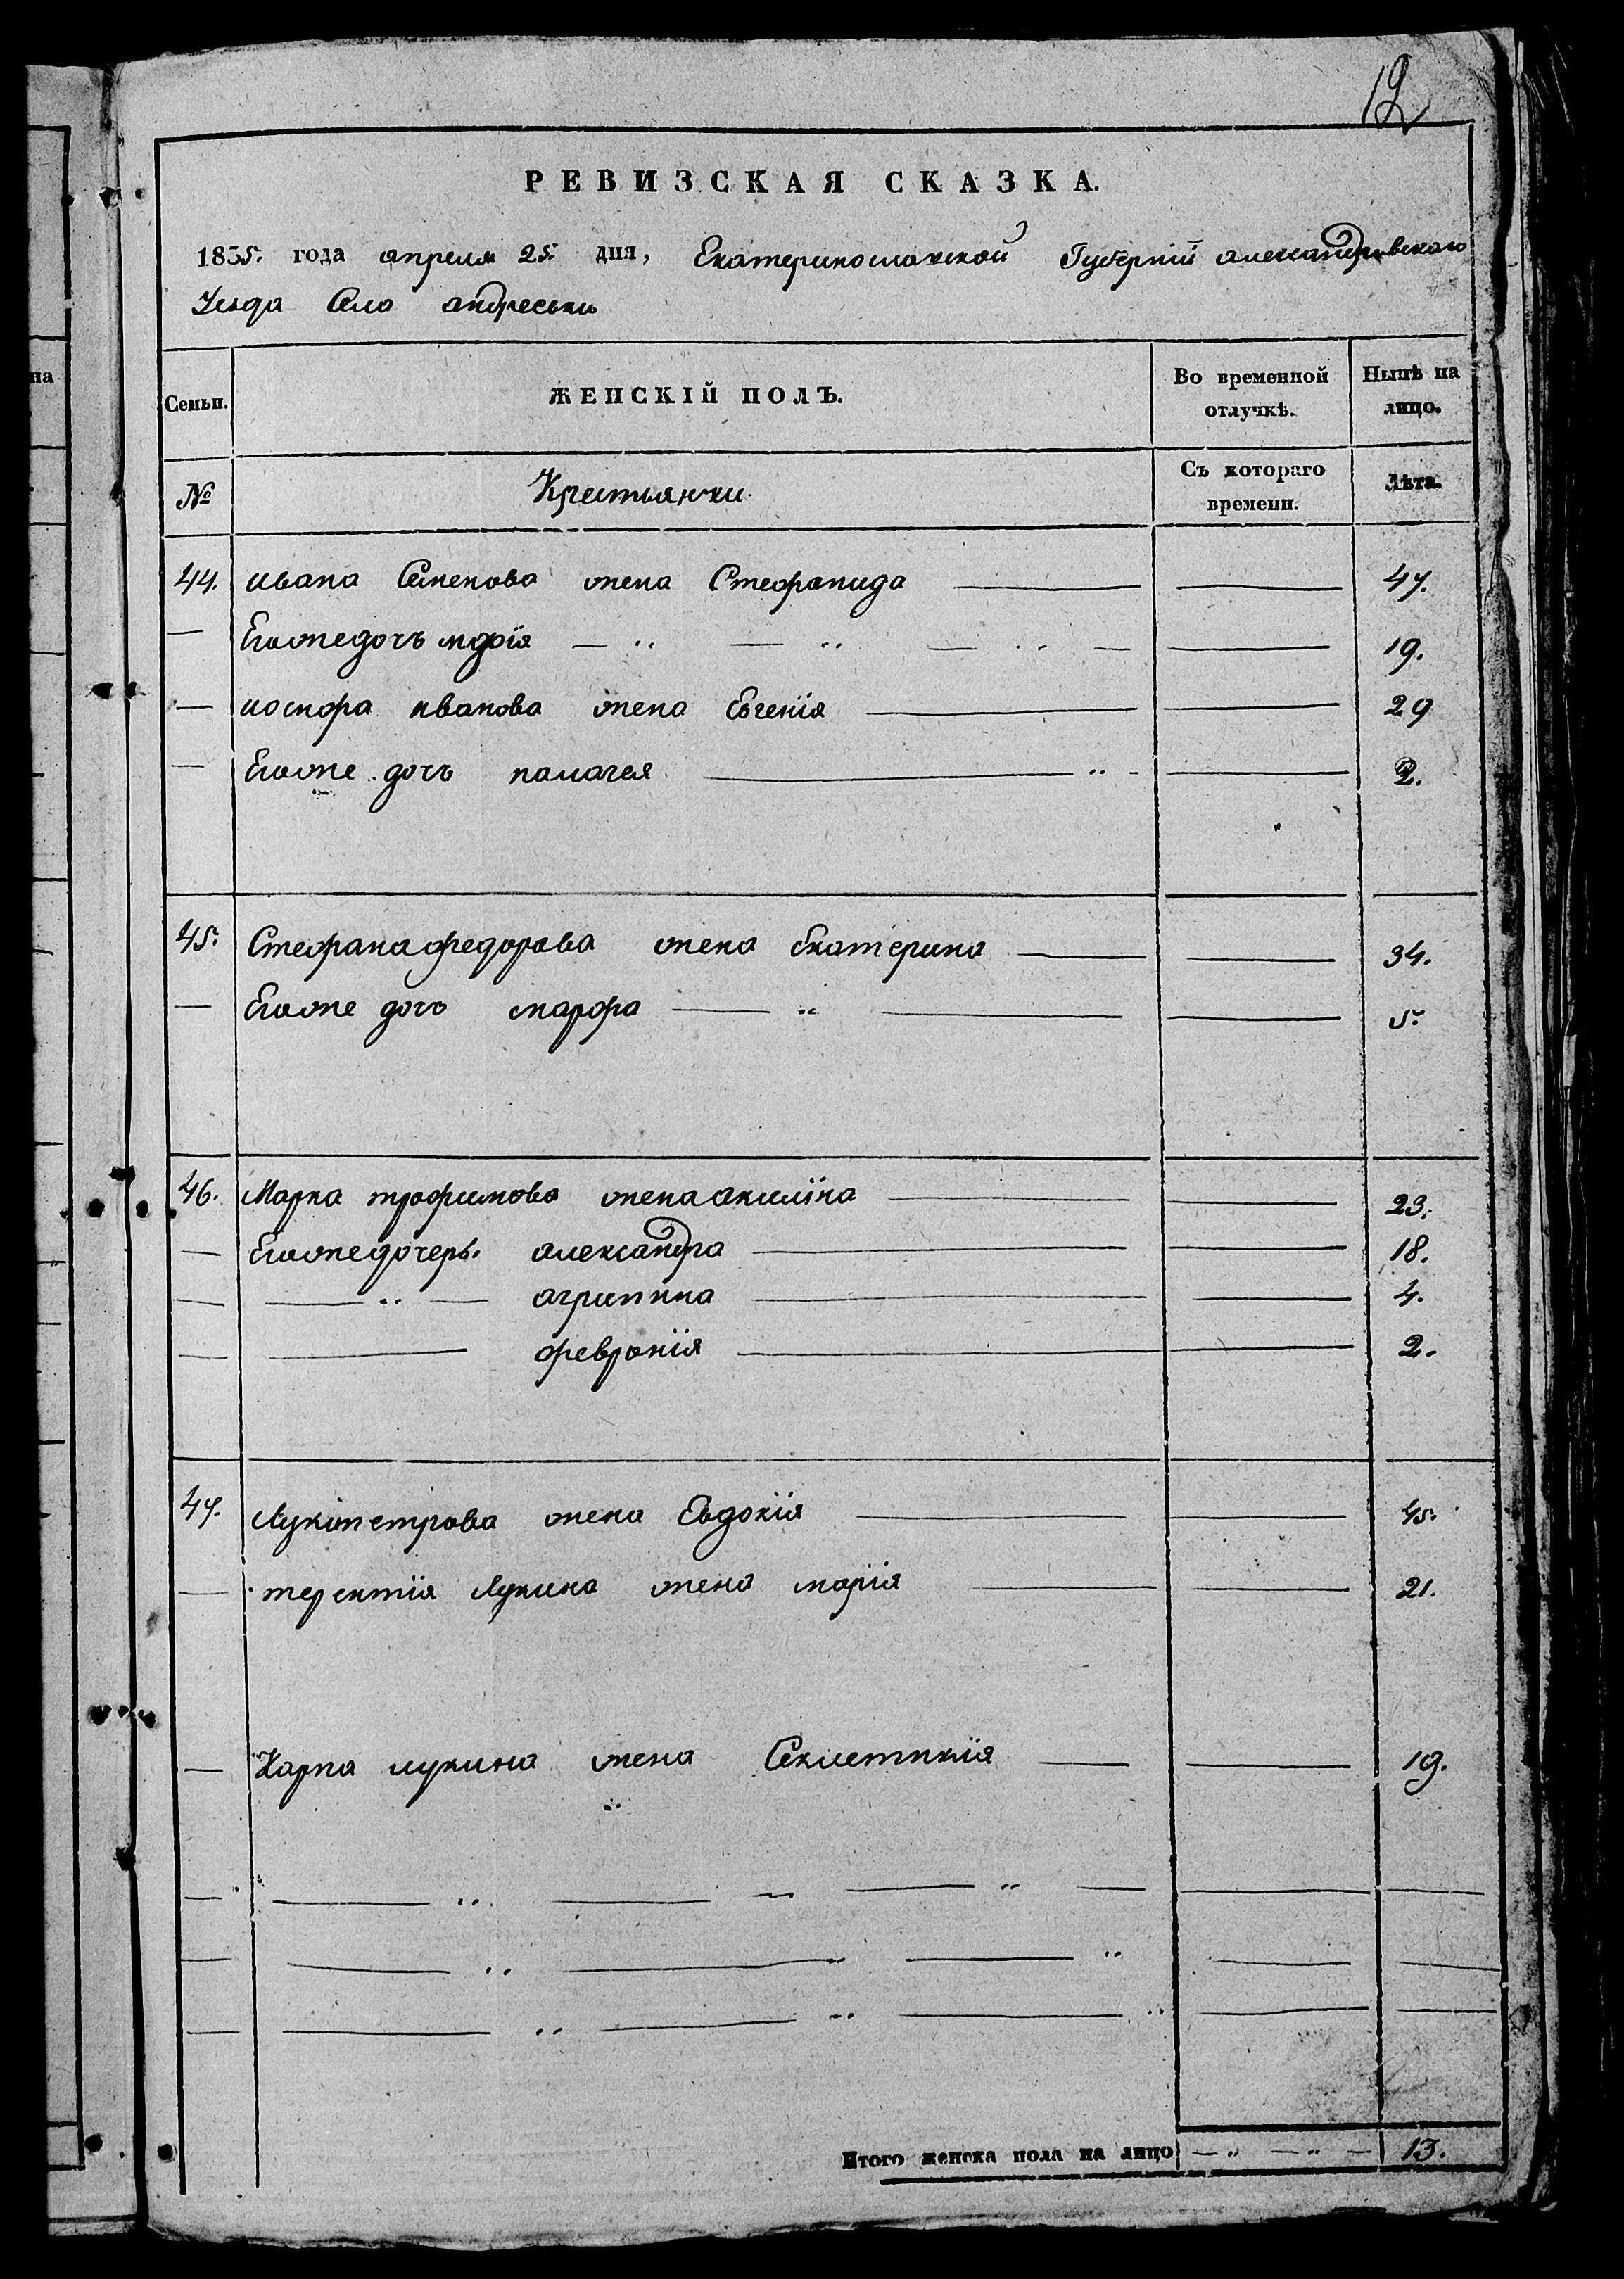 12
РЕВИЗСКАЯ СКАЗКА.
1835. года апреля 25. дня, Екатеринославской Губерніи александровскаго
Уезда Села андреевки
на
Семьи.
ЖЕНСКІЙ ПОЛЪ.
Во временной отлучкѣ.
Нынѣ на лицо.
№
Крестьянки.
Съ котораго времени.
Лѣта.
44. ивана Семенова жена Стефанида 47.
— Егожедочъ марія 19.
— иосифа иванова жена Евгенія 29
— Егоже дочъ палагея 2.
45. Стефанафедорова жена Екатерина 34.
— Егоже дочъ марфа 5.
46. Марка трофимова женаакилина 23.
— Егожедочеръ. александра 18.
— — „ — агрипина 4.
— — февронія 2.
47. Лукипетрова жена Евдокія 45.
— терентія Лукина жена марія 21.
— Карпа лукина жена Секлетикія 19.
Итого женска пола на лицо — „ — „ — 13.